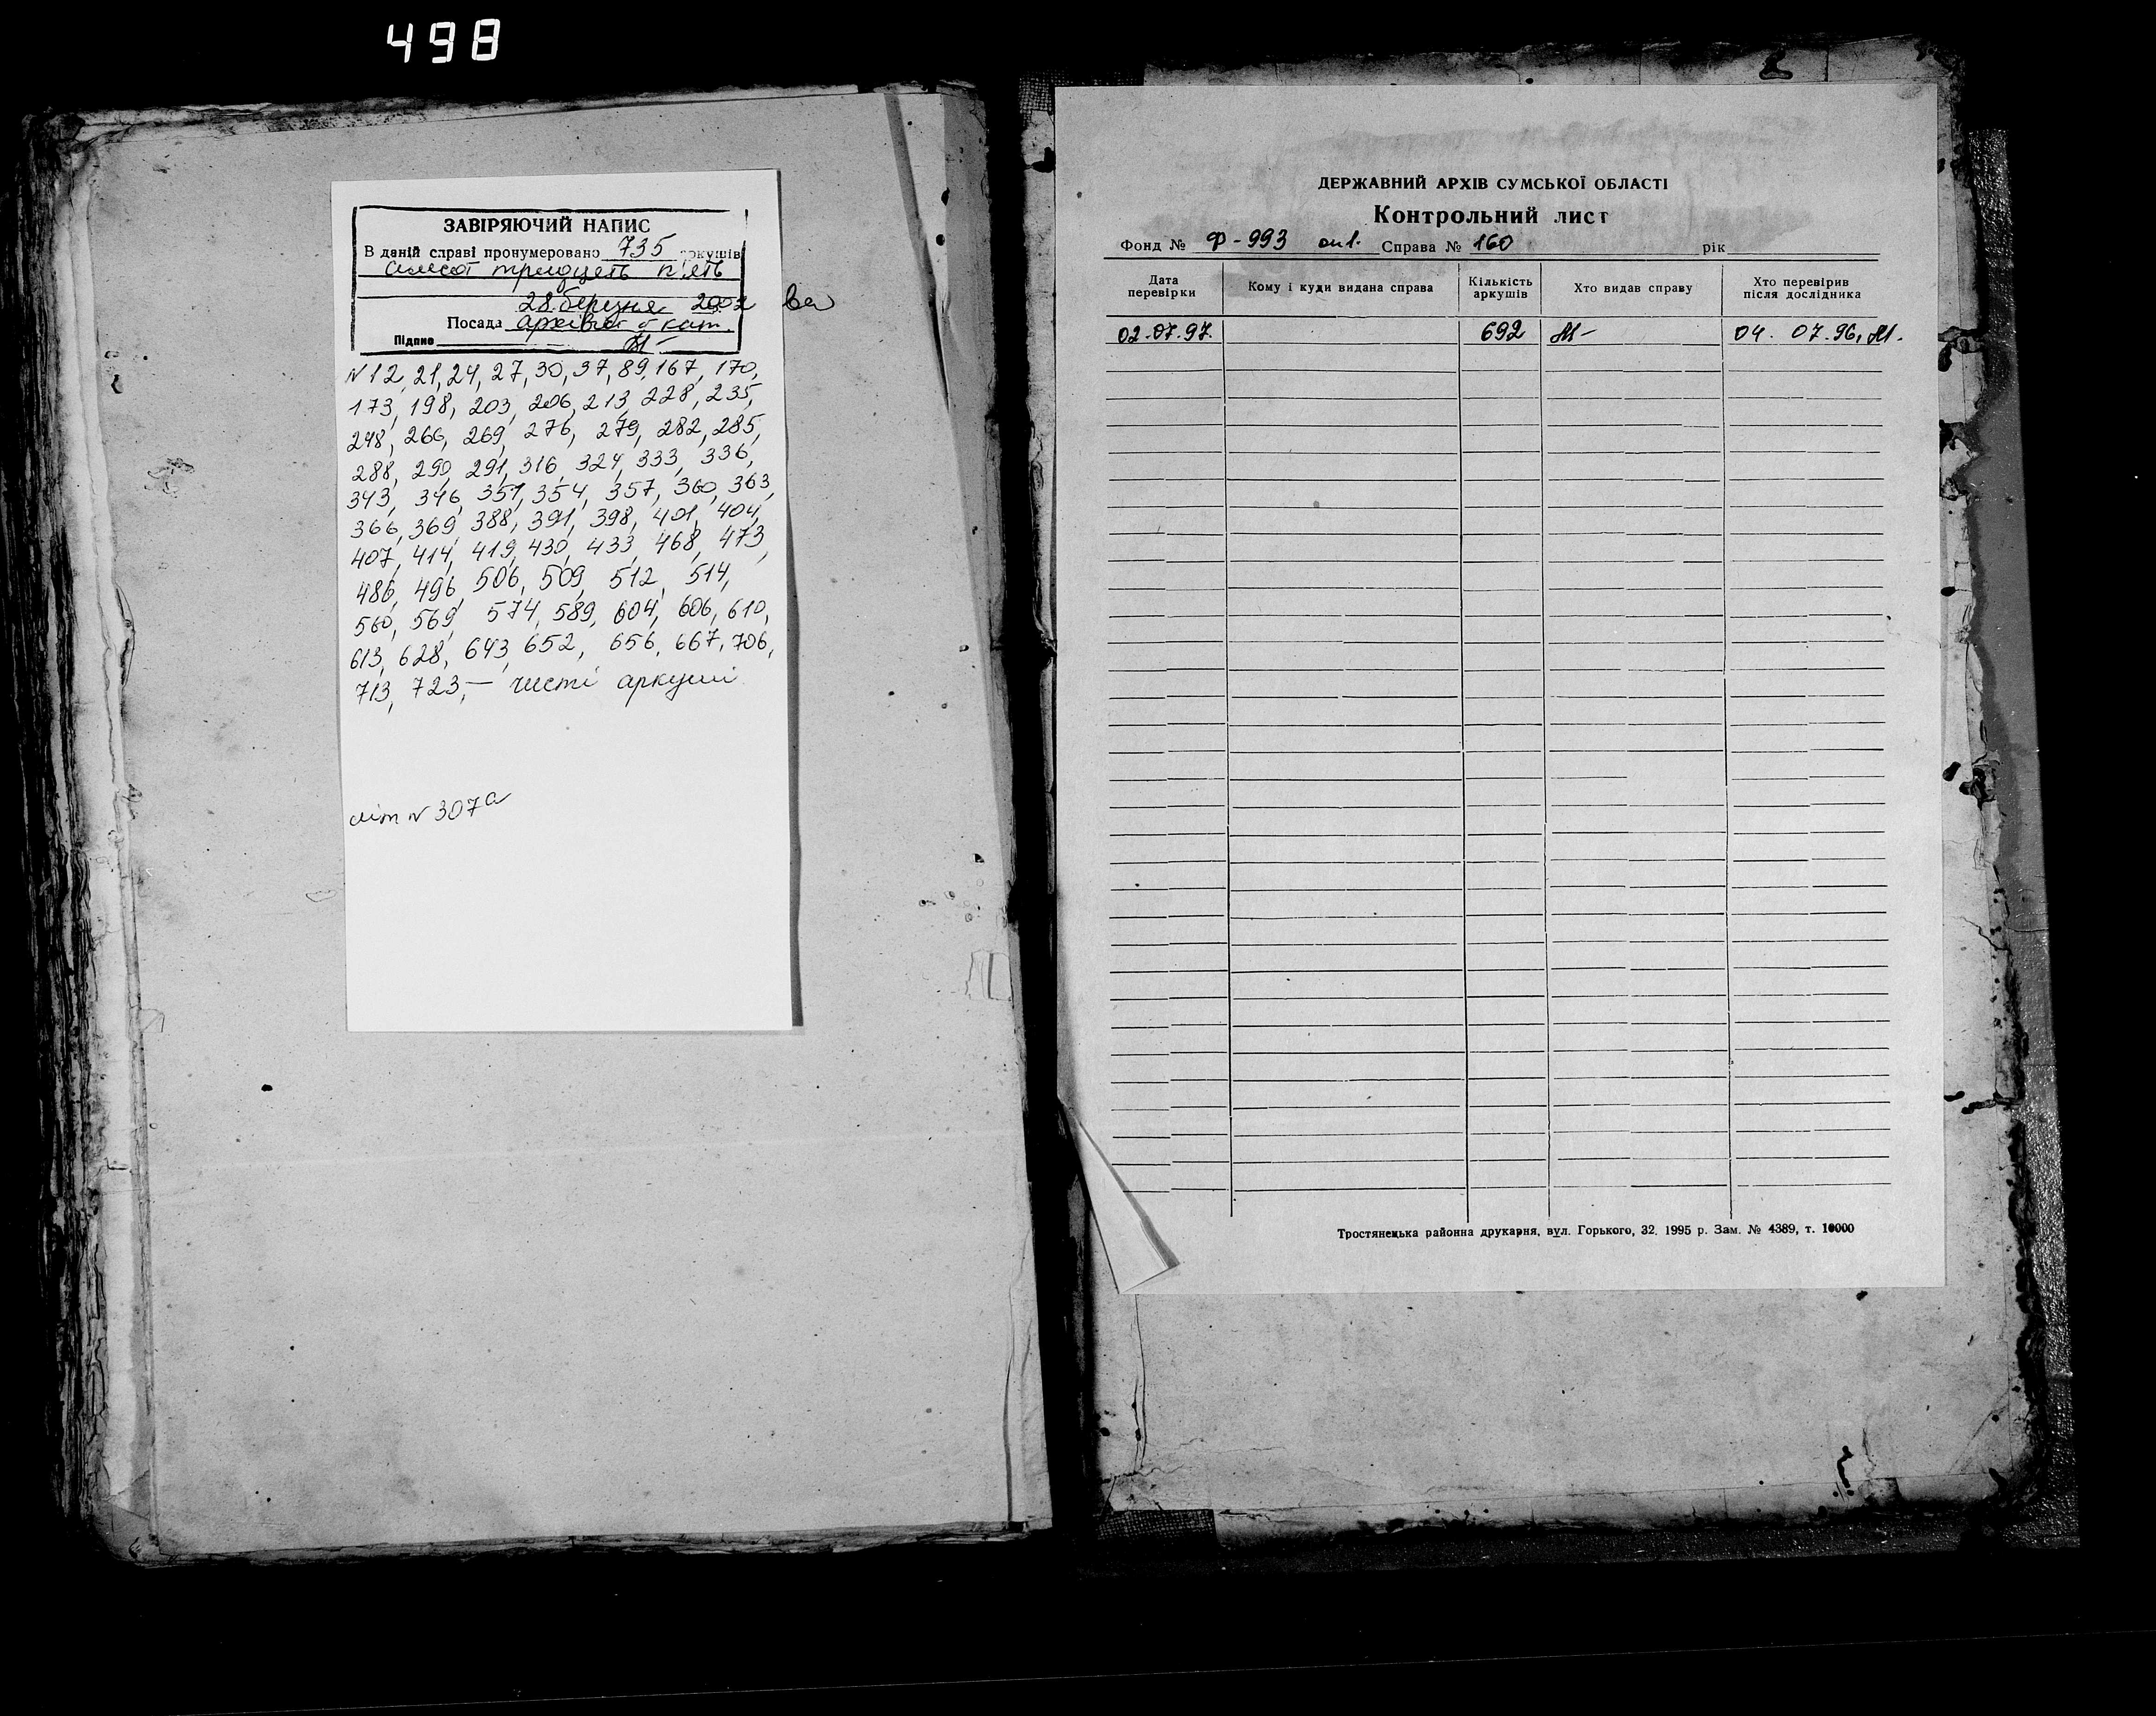 498
ЗАВІРЯЮЧИЙ НАПИС
В даній справі пронумеровано 735 аркушів
сімсот тридцять п'ять
28 березня 2002
Посада архівіст кат.
Підпис
N 12, 21, 24, 27, 30, 37, 89, 167, 170,
173, 198, 203, 206, 213, 228, 235,
248, 266, 269, 276, 279, 282, 285,
288, 290, 291, 316, 324, 333, 336,
343, 346, 351, 354, 357, 360, 363,
366, 369, 388, 391, 398, 401, 404,
407, 414, 419, 430, 433, 468, 473,
486, 496, 506, 509, 512, 514,
560, 569, 574, 589, 604, 606, 610,
613, 628, 643, 652, 656, 667, 706,
713, 723, — чисті аркуші
літ N 307а
ДЕРЖАВНИЙ АРХІВ СУМСЬКОЇ ОБЛАСТІ
Контрольний лист
Фонд № Ф-993 оп 1. Справа № 160 рік
Дата перевірки Кому і куди видана справа Кількість аркушів Хто видав справу Хто перевірив після дослідника
02.07.97. 692 04. 07.96,
Тростянецька районна друкарня, вул. Горького, 32. 1995 р. Зам. № 4389, т. 10000